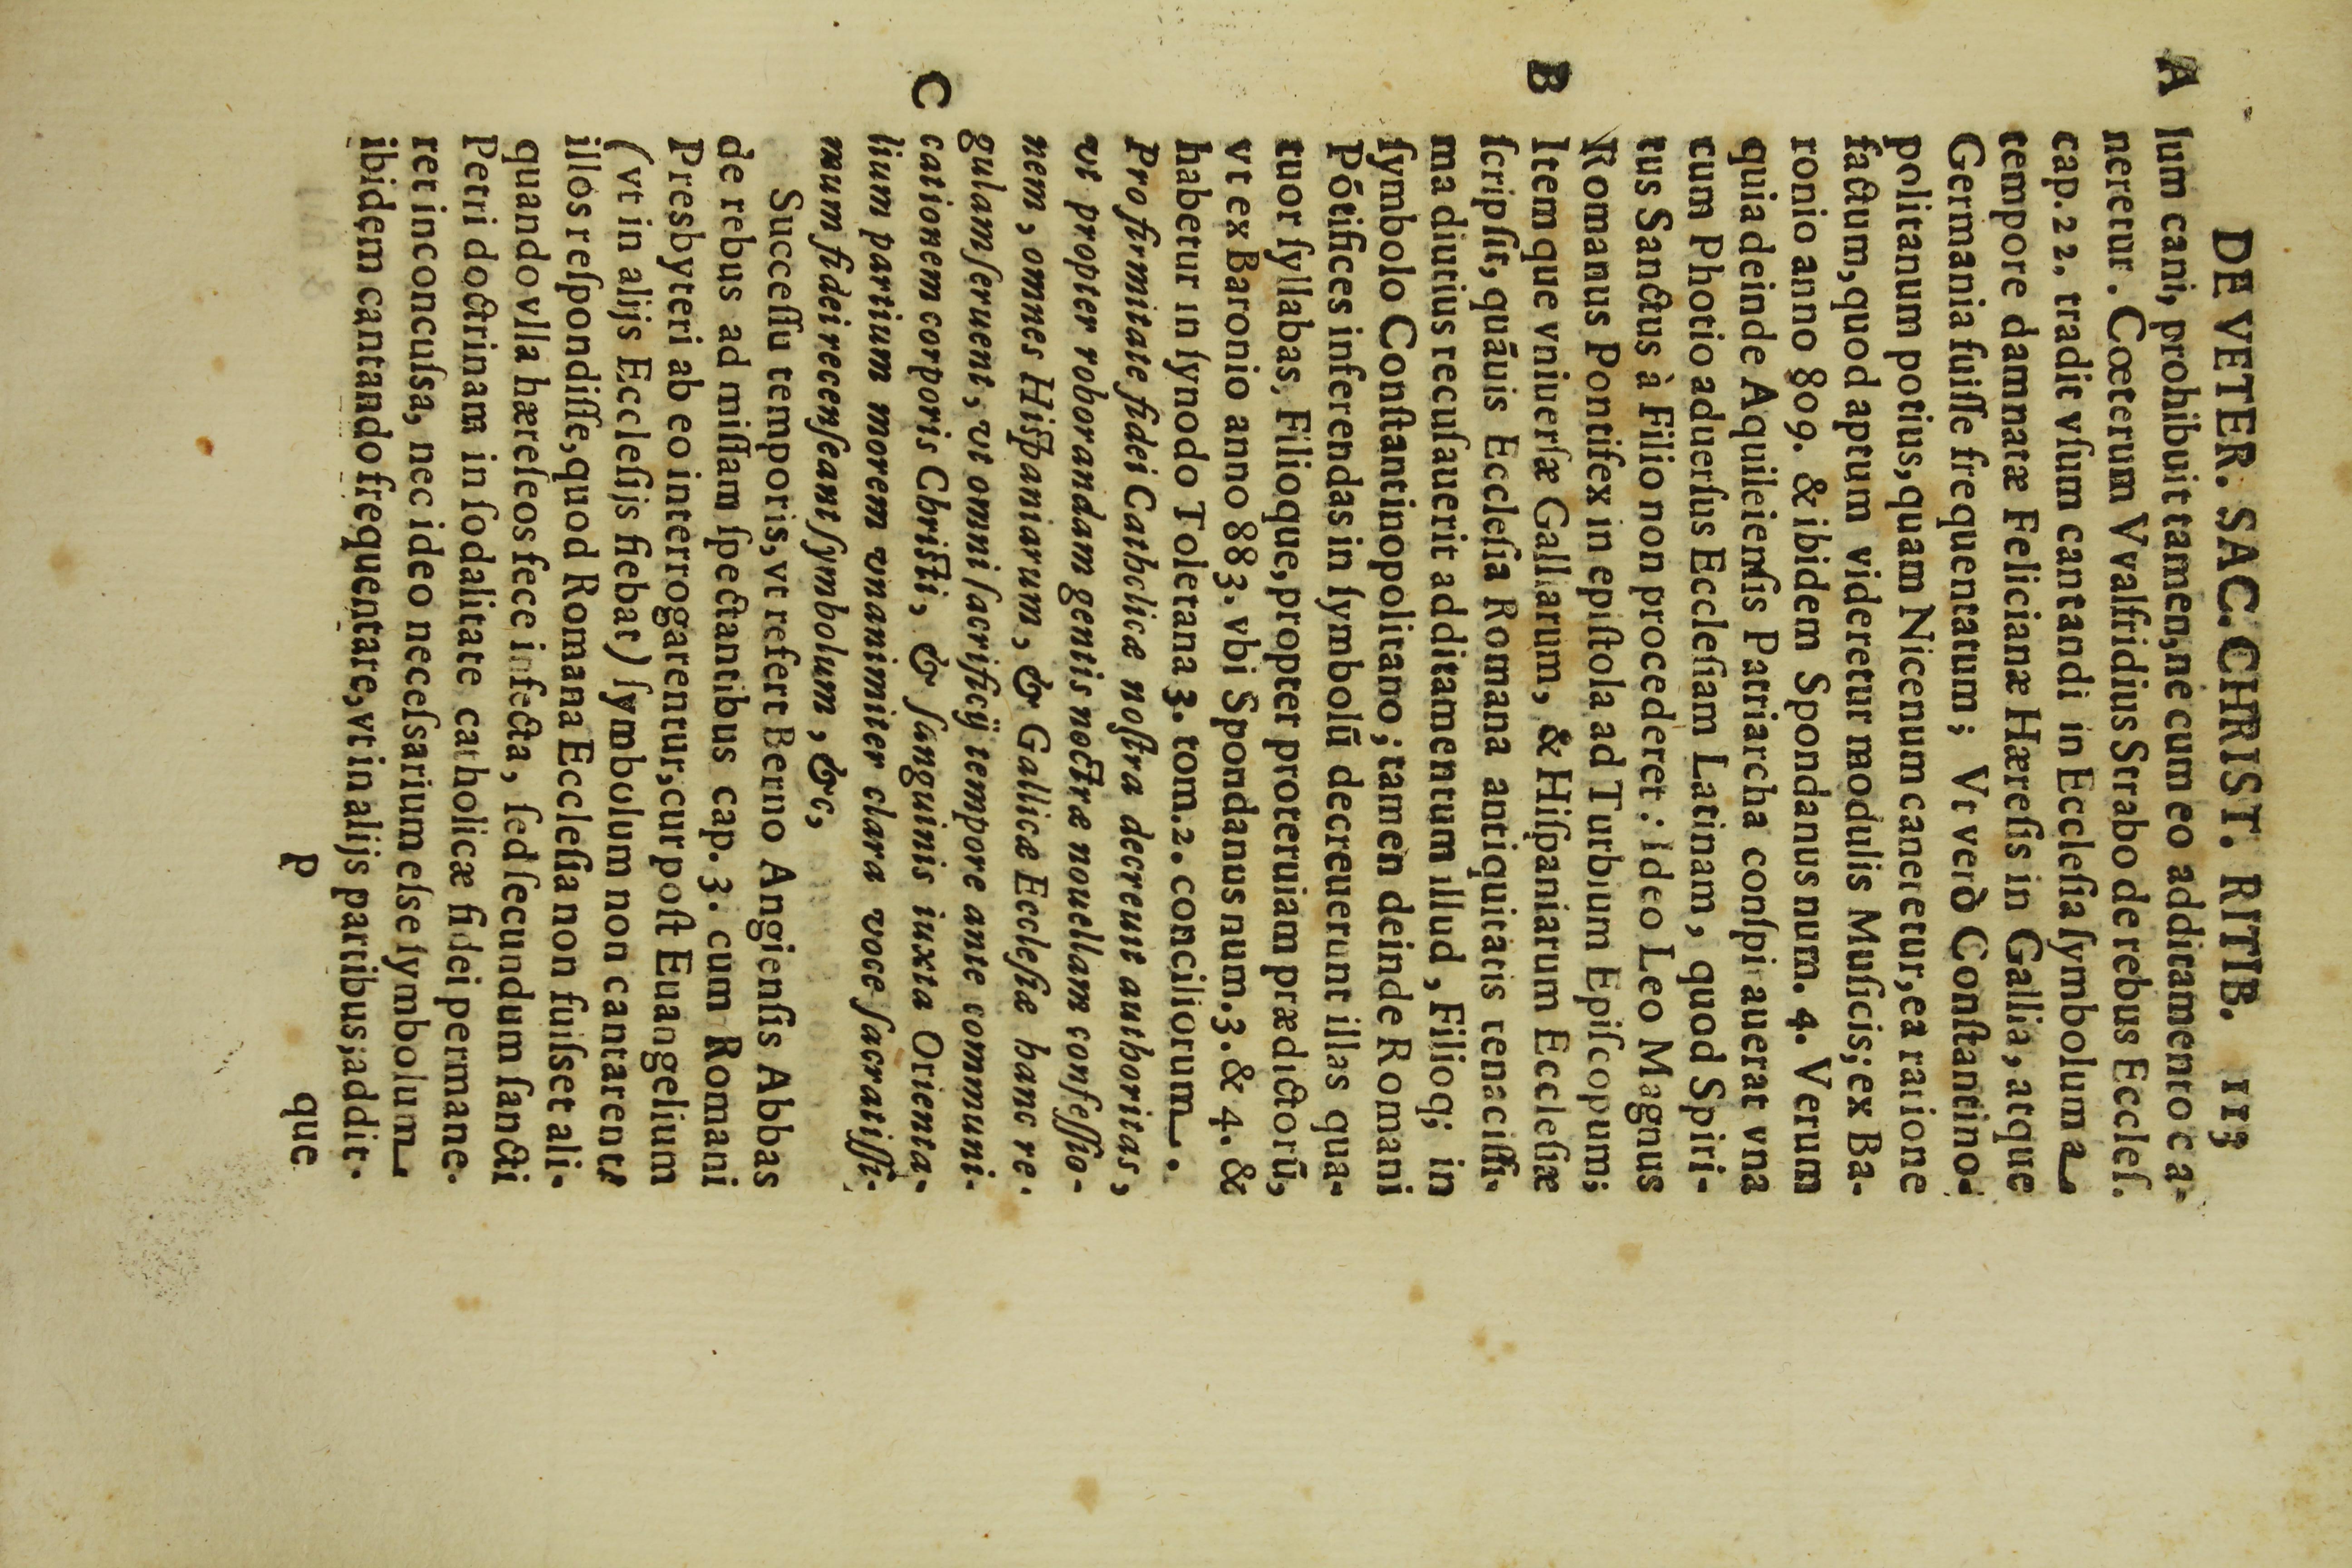 DE VETER. SAC. CHRIST. RITIB. 113
A lum cani, prohibuit tamen, ne cum eo additamento ca-
neretur. Cœterum Vvalfridius Strabo de rebus Eccleſ.
cap. 22. tradit vſum cantandi in Eccleſia ſymbolum a
tempore damnatæ Felicianæ Hæreſis in Gallia, atque
Germania fuiſſe frequentatum; Vt verò Conſtantino-
politanum potius, quam Nicenum caneretur, ea ratione
factum, quod aptum videretur modulis Muſicis; ex Ba-
ronio anno 809. & ibidem Spondanus num. 4. Verum
quia deinde Aquileienſis Patriarcha conſpirauerat vna
cum Photio aduerſus Eccleſiam Latinam, quod Spiri-
tus Sanctus à Filio non procederet: ideo Leo Magnus
Romanus Pontifex in epiſtola ad Turbium Epiſcopum;
B Item que vniuerſæ Galliarum, & Hiſpaniarum Eccleſiæ
ſcripſit, quāuis Eccleſia Romana antiquitatis tenaciſſi-
ma diutius recuſauerit additamentum illud, Filioq; in
ſymbolo Conſtantinopolitano; tamen deinde Romani
Pōtifices inferendas in ſymbolū decreuerunt illas qua-
tuor ſyllabas, Filioque, propter proteruiam prædictorū,
vt ex Baronio anno 883. vbi Spondanus num. 3. & 4. &
habetur in ſynodo Toletana 3. tom. 2. conciliorum.
Pro firmitate fidei Catholicæ noſtra decreuit authoritas,
vt propter roborandam gentis noctræ nouellam confeſſio-
nem, omnes Hiſpaniarum, & Gallicæ Eccleſiæ hanc re-
gulam ſeruent, vt omni ſacrificij tempore ante communi-
C cationem corporis Chriſti, & ſanguinis iuxta Orienta-
lium partium morem vnanimiter clara voce ſacratiſſi-
mum fidei recenſeant ſymbolum, &c,
Succeſſu temporis, vt refert Berno Angienſis Abbas
de rebus ad miſſam ſpectantibus cap. 3. cum Romani
Presbyteri ab eo interrogarentur, cur poſt Euangelium
(vt in alijs Eccleſijs fiebat) ſymbolum non cantarent,
illos reſpondiſſe, quod Romana Eccleſia non fuiſset ali-
quando vlla hæreſeos fece infecta, ſed ſecundum ſancti
Petri doctrinam in ſodalitate catholicæ fidei permane-
ret inconcuſsa, nec ideo neceſsarium eſse ſymbolum
ibidem cantando frequentare, vt in alijs partibus; addit-
P que